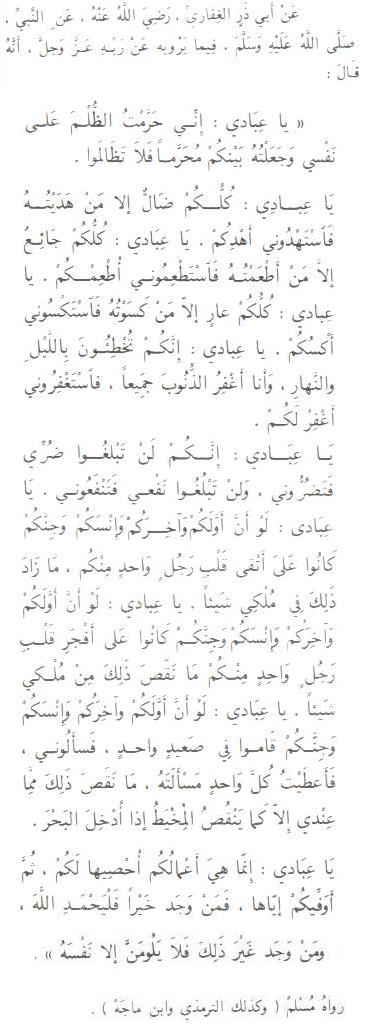 عَنْ أَبي ذَرٍّ الغِفاريِّ ، رَضِيَ اللَّهُ عَنْهُ ، عَن ِ النَّبيِّ ،
صَلَّى اللَّهُ عَلَيْهِ وَسَلَّمَ ، فِيما يَرْوِيه عَنْ رَبِّـهِ عَـزَّ وَجَلَّ ، أَنَّهُ
قـالَ :
« يا عِبـادي : إنَّــي حَرَّمْتُ الظُّلْـمَ عَلَـى
نَفْسي وَجَعَلْتُهُ بَيْنَكُمْ مُحَرَّمـاً فَلاَ تَظَالَموا .
يَا عِبــادِي : كُلُّــكُمْ ضَالٌّ إلا مَنْ هَدَيْتُــهُ
فَٱسْتَهْدُوني أَهْدِكُمْ . يَا عِبَادي : كُلُّكُمْ جَائِـعٌ
إلاَّ مَنْ أَطْعَمْتُـهُ فَٱسْتَطْعِمُونــي أُطْعِمْــكُمْ . يا
عِبادي : كُلُّكُمْ عارٍ إلاَّ مَنْ كَسَوْتُهُ فَٱسْتَكْسُوني
أَكْسُكُمْ . يا عِبادي : إنَّكُـمْ تُخْطِئُــونَ بِاللَّيْل ِ
والنَّهارِ ، وَأَنا أَغْفِرُ الذُّنُوبَ جَمِيعاً ، فاسْتَغْفِرُوني
أَغْفِرْ لَكُـمْ .
يَــا عِبَــادي : إنَّــكُمْ لَنْ تَبْلُغُــوا ضُرِّي
فَتَضُرُّوني ، وَلَنْ تَبْلُغُـوا نَفْعـي فَتَنْفَعُونـي . يَا
عِبَادي : لَوْ أنَّ أَوَّلَكُمْ وَآخِــرَكُمْ وَإنْسَكُمْ وَجِنَّكُمْ
كَانُوا عَلىَ أَتْقَى قَلْبِ رَجُل ٍ وَاحدٍ مِنْكُم ، مَا زَادَ
ذَلِكَ فِي مُلْكِي شَيْئاً . يا عِبادي : لَوْ أنَّ أَوَّلَكُمْ
وَآخِرَكُمْ وَإنْسَكُمْ وَجِنَّكُـمْ كَانُوا عَلى أَفْجَرِ قَلْـبِ
رَجُل ٍ وَاحِدٍ مِنْـكُمْ مَا نَقَصَ ذَلِكَ مِنْ مُلْـكي
شَيئاً . يا عِبَادي : لَوْ أنَّ أَوَّلَكُمْ وآخِرَكُمْ وَإنْسَكُمْ
وَجِنَّــكُمْ قَامـوا فِي صَعيدٍ واحـدٍ ، فَسأَلُونـي ،
فَأَعطَيْتُ كُلَّ وَاحدٍ مَسْأَلَتَهُ ، مَا نَقَصَ ذَلِكَ مِمَّا
عِنْدي إلاَّ كَما يَنْقُصُ المِخْيَطُ إذا أُدْخِلَ البَحْرَ .
يَا عِبَادي : إنَّمَا هِيَ أَعْمَالُكُم أُحْصِيها لَكُمْ ، ثُمَّ
أُوَفِّيكُمْ إيَّاها ، فَمَنْ وَجَد خَيْراً فَلْيَحْمَـدِ اللَّهَ ،
ومَنْ وَجَد غَيْرَ ذَلِكَ فَلاَ يَلُومَنَّ إلا نَفْسَهُ » .
رواهُ مُسْلمٌ ( وكذلك الترمذي وابن ماجَهْ ) .